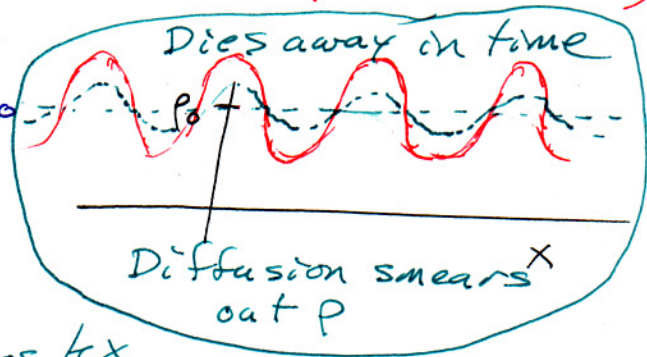 Dies away in time
ρ₀
x
Diffusion smears
out ρ
kx